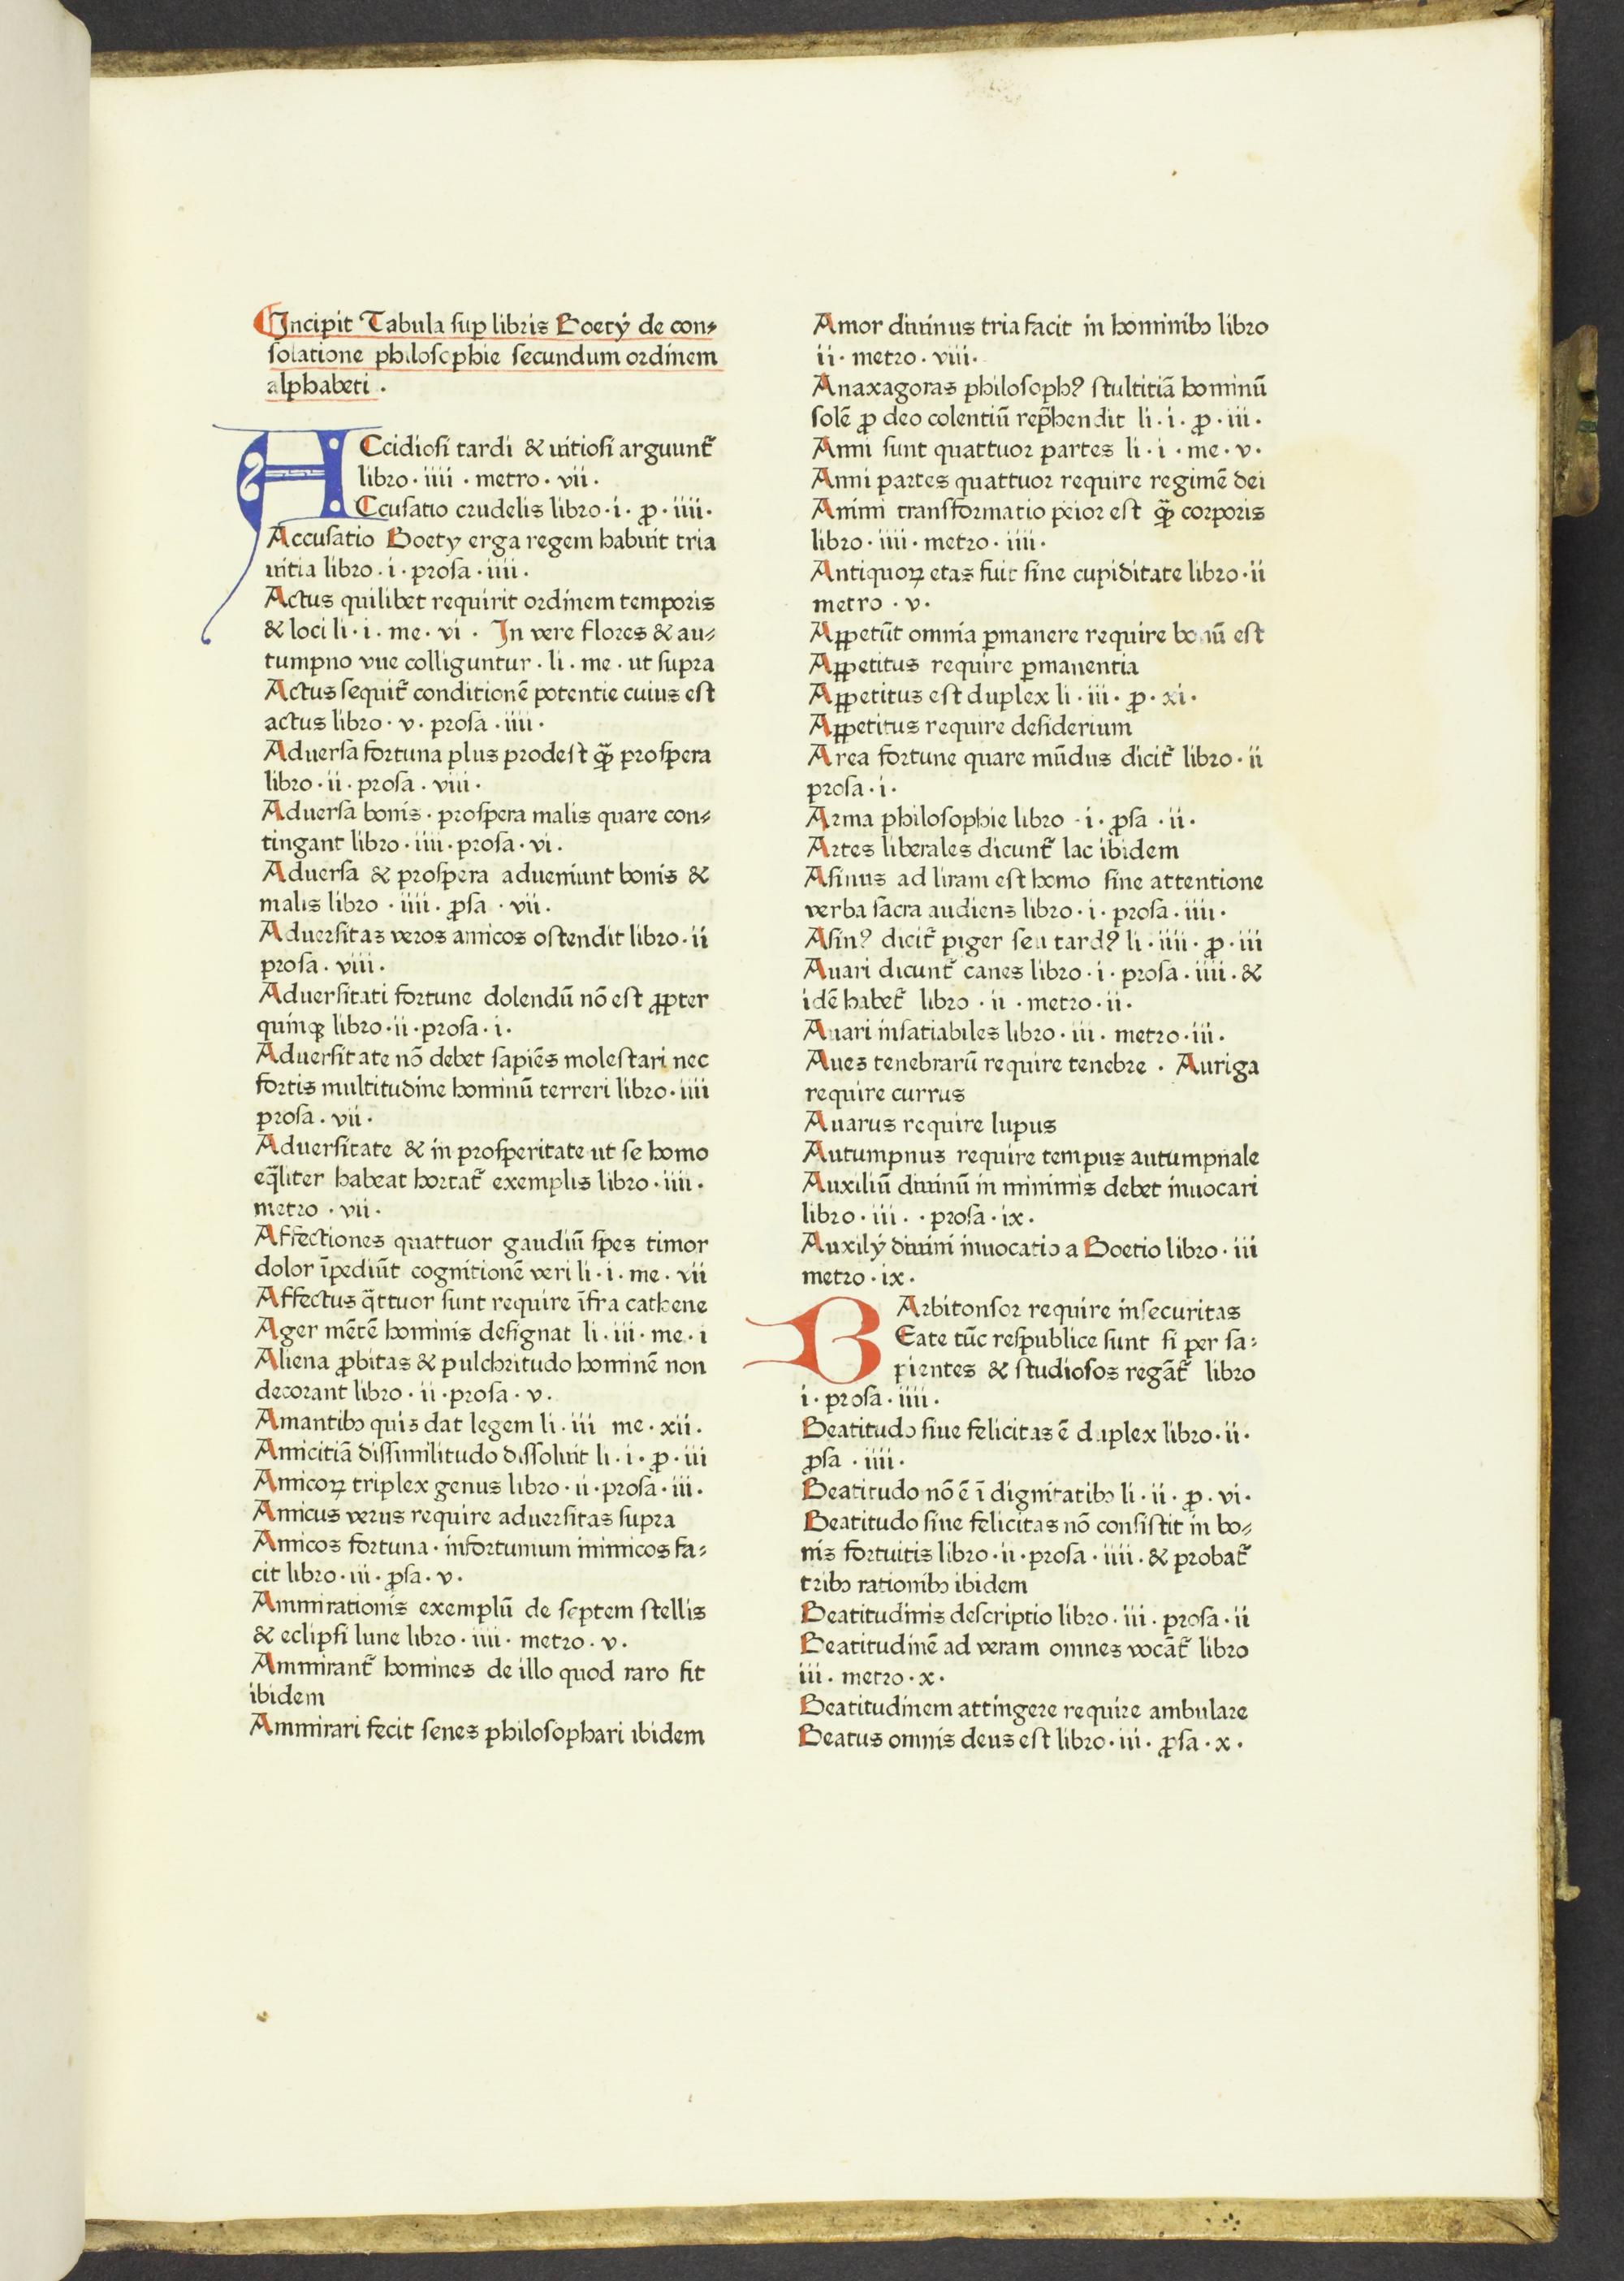 Incipit Tabula sup̱ libris Boetÿ de con⸗
solatione philosophie secundum ordinem
alphabeti .
ACcidiosi tardi & uitiosi arguunt᷑
libro · iiii · metro · vii ·
Ccusatio crudelis libro · i · ꝓ · iiii ·
Accusatio Boety erga regem habuit tria
uitia libro · i · prosa · iiii ·
Actus quilibet requirit ordinem temporis
& loci li · i · me · vi · In vere flores & au⸗
tumpno vue colliguntur · li · me · ut supra
Actus sequit᷑ conditionē potentie cuius est
actus libro · v · prosa · iiii ·
Aduersa fortuna plus prodest ꝙ̃ prospera
libro · ii · prosa · viii ·
Aduersa bonis · prospera malis quare con⸗
tingant libro · iiii · prosa · vi ·
Aduersa & prospera adueniunt bonis &
malis libro · iiii · ꝓsa · vii ·
Aduersitas veros amicos ostendit libro · ii
prosa · viii ·
Aduersitati fortune dolendū nō est ꝓpter
quinqꝫ libro · ii · prosa · i ·
Aduersitate nō debet sapiēs molestari nec
fortis multitudine hominū terreri libro · iiii
prosa · vii ·
Aduersitate & in prosperitate ut se homo
eq̄liter habeat hortat᷑ exemplis libro · iiii ·
metro · vii ·
Affectiones quattuor gaudiū spes timor
dolor īpediūt cognitionē veri li · i · me · vii
Affectus q̄ttuor sunt require īfra cathene
Ager mētē hominis designat li · iii · me · i
Aliena ꝓbitas & pulchritudo hominē non
decorant libro · ii · prosa · v ·
Amantibɔ quis dat legem li · iii me · xii ·
Amicitiā dissimilitudo dissoluit li · i · ꝓ · iii
Amicoꝝ triplex genus libro · ii · prosa · iii ·
Amicus verus require aduersitas supra
Amicos fortuna · infortunium inimicos fa⸗
cit libro · iii · ꝓsa · v ·
Ammirationis exemplū de septem stellis
& eclipsi lune libro · iiii · metro · v ·
Ammirant᷑ homines de illo quod raro fit
ibidem
Ammirari fecit senes philosophari ibidem
Amor diuinus tria facit in hominibɔ libro
ii · metro · viii ·
Anaxagoras philosoph? stultitiā hominū
solē ꝓ deo colentiū rep̄hendit li · i · ꝓ · iii ·
Anni sunt quattuor partes li · i · me · v ·
Anni partes quattuor require regimē dei
Animi transformatio peior est ꝙ̃ corporis
libro · iiii · metro · iiii ·
Antiquoꝝ etas fuit sine cupiditate libro · ii
metro · v ·
Aꝑpetūt omnia ꝑmanere require bonū est
Aꝑpetitus require ꝑmanentia
Aꝑpetitus est duplex li · iii · ꝓ · xi ·
Aꝑpetitus require desiderium
Area fortune quare mūdus dicit᷑ libro · ii
prosa · i ·
Arma philosophie libro · i · ꝓsa · ii ·
Artes liberales dicunt᷑ lac ibidem
Asinus ad liram est homo sine attentione
verba sacra audiens libro · i · prosa · iiii ·
Asin? dicit᷑ piger seu tard? li · iiii · ꝓ · iii
Auari dicunt᷑ canes libro · i · prosa · iiii · &
idē habet᷑ libro · ii · metro · ii ·
Auari insatiabiles libro · iii · metro · iii ·
Aues tenebrarū require tenebre · Auriga
require currus
Auarus require lupus
Autumpnus require tempus autumpnale
Auxiliū diuinū in minimis debet inuocari
libro · iii · · prosa · ix ·
Auxilÿ diuini inuocatio a Boetio libro · iii
metro · ix ·
BArbitonsor require insecuritas
Eate tūc respublice sunt si per sa⸗
pientes & studiosos regāt᷑ libro
i · prosa · iiii ·
Beatitudo siue felicitas ē duplex libro · ii ·
ꝓsa · iiii ·
Beatitudo nō ē ī dignitatibɔ li · ii · ꝓ · vi ·
Beatitudo siue felicitas nō consistit in bo⸗
nis fortuitis libro · ii · prosa · iiii · & probat᷑
tribɔ rationibɔ ibidem
Beatitudinis descriptio libro · iii · prosa · ii
Beatitudinē ad veram omnes vocāt᷑ libro
iii · metro · x ·
Beatitudinem attingere require ambulare
Beatus omnis deus est libro · iii · ꝓsa · x ·